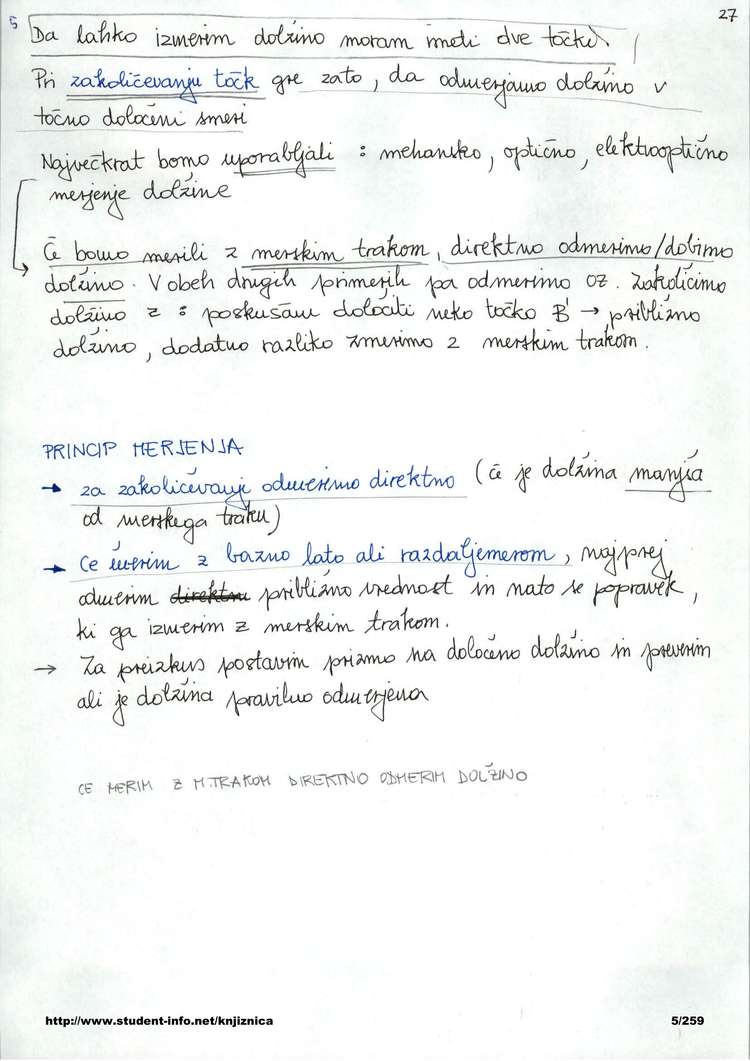 27
5 Da lahko izmerim dolžino moram imeti dve točki.
Pri zakoličevanju točk gre zato, da odmerjamo dolžino v
točno določeni smeri
Največkrat bomo uporabljali : mehansko, optično, elektrooptično
merjenje dolžine
Če bomo merili z merskim trakom, direktno odmerimo/dobimo
dolžino. V obeh drugih primerih pa odmerimo oz. zakoličimo
dolžino z : poskušam določiti neko točko B' → približno
dolžino, dodatno razliko zmerimo z merskim trakom.
PRINCIP MERJENJA
→ za zakoličevanje odmerimo direktno (če je dolžina manjša
od merskega traku)
→ Če merim z bazno lato ali razdaljemerom, najprej
odmerim direktno približno vrednost in nato še popravek,
ki ga izmerim z merskim trakom.
→ Za preizkus postavim prizmo na določeno dolžino in preverim
ali je dolžina pravilno odmerjena
ČE MERIM Z M.TRAKOM DIREKTNO ODMERIM DOLŽINO
http://www.student-info.net/knjiznica
5/259